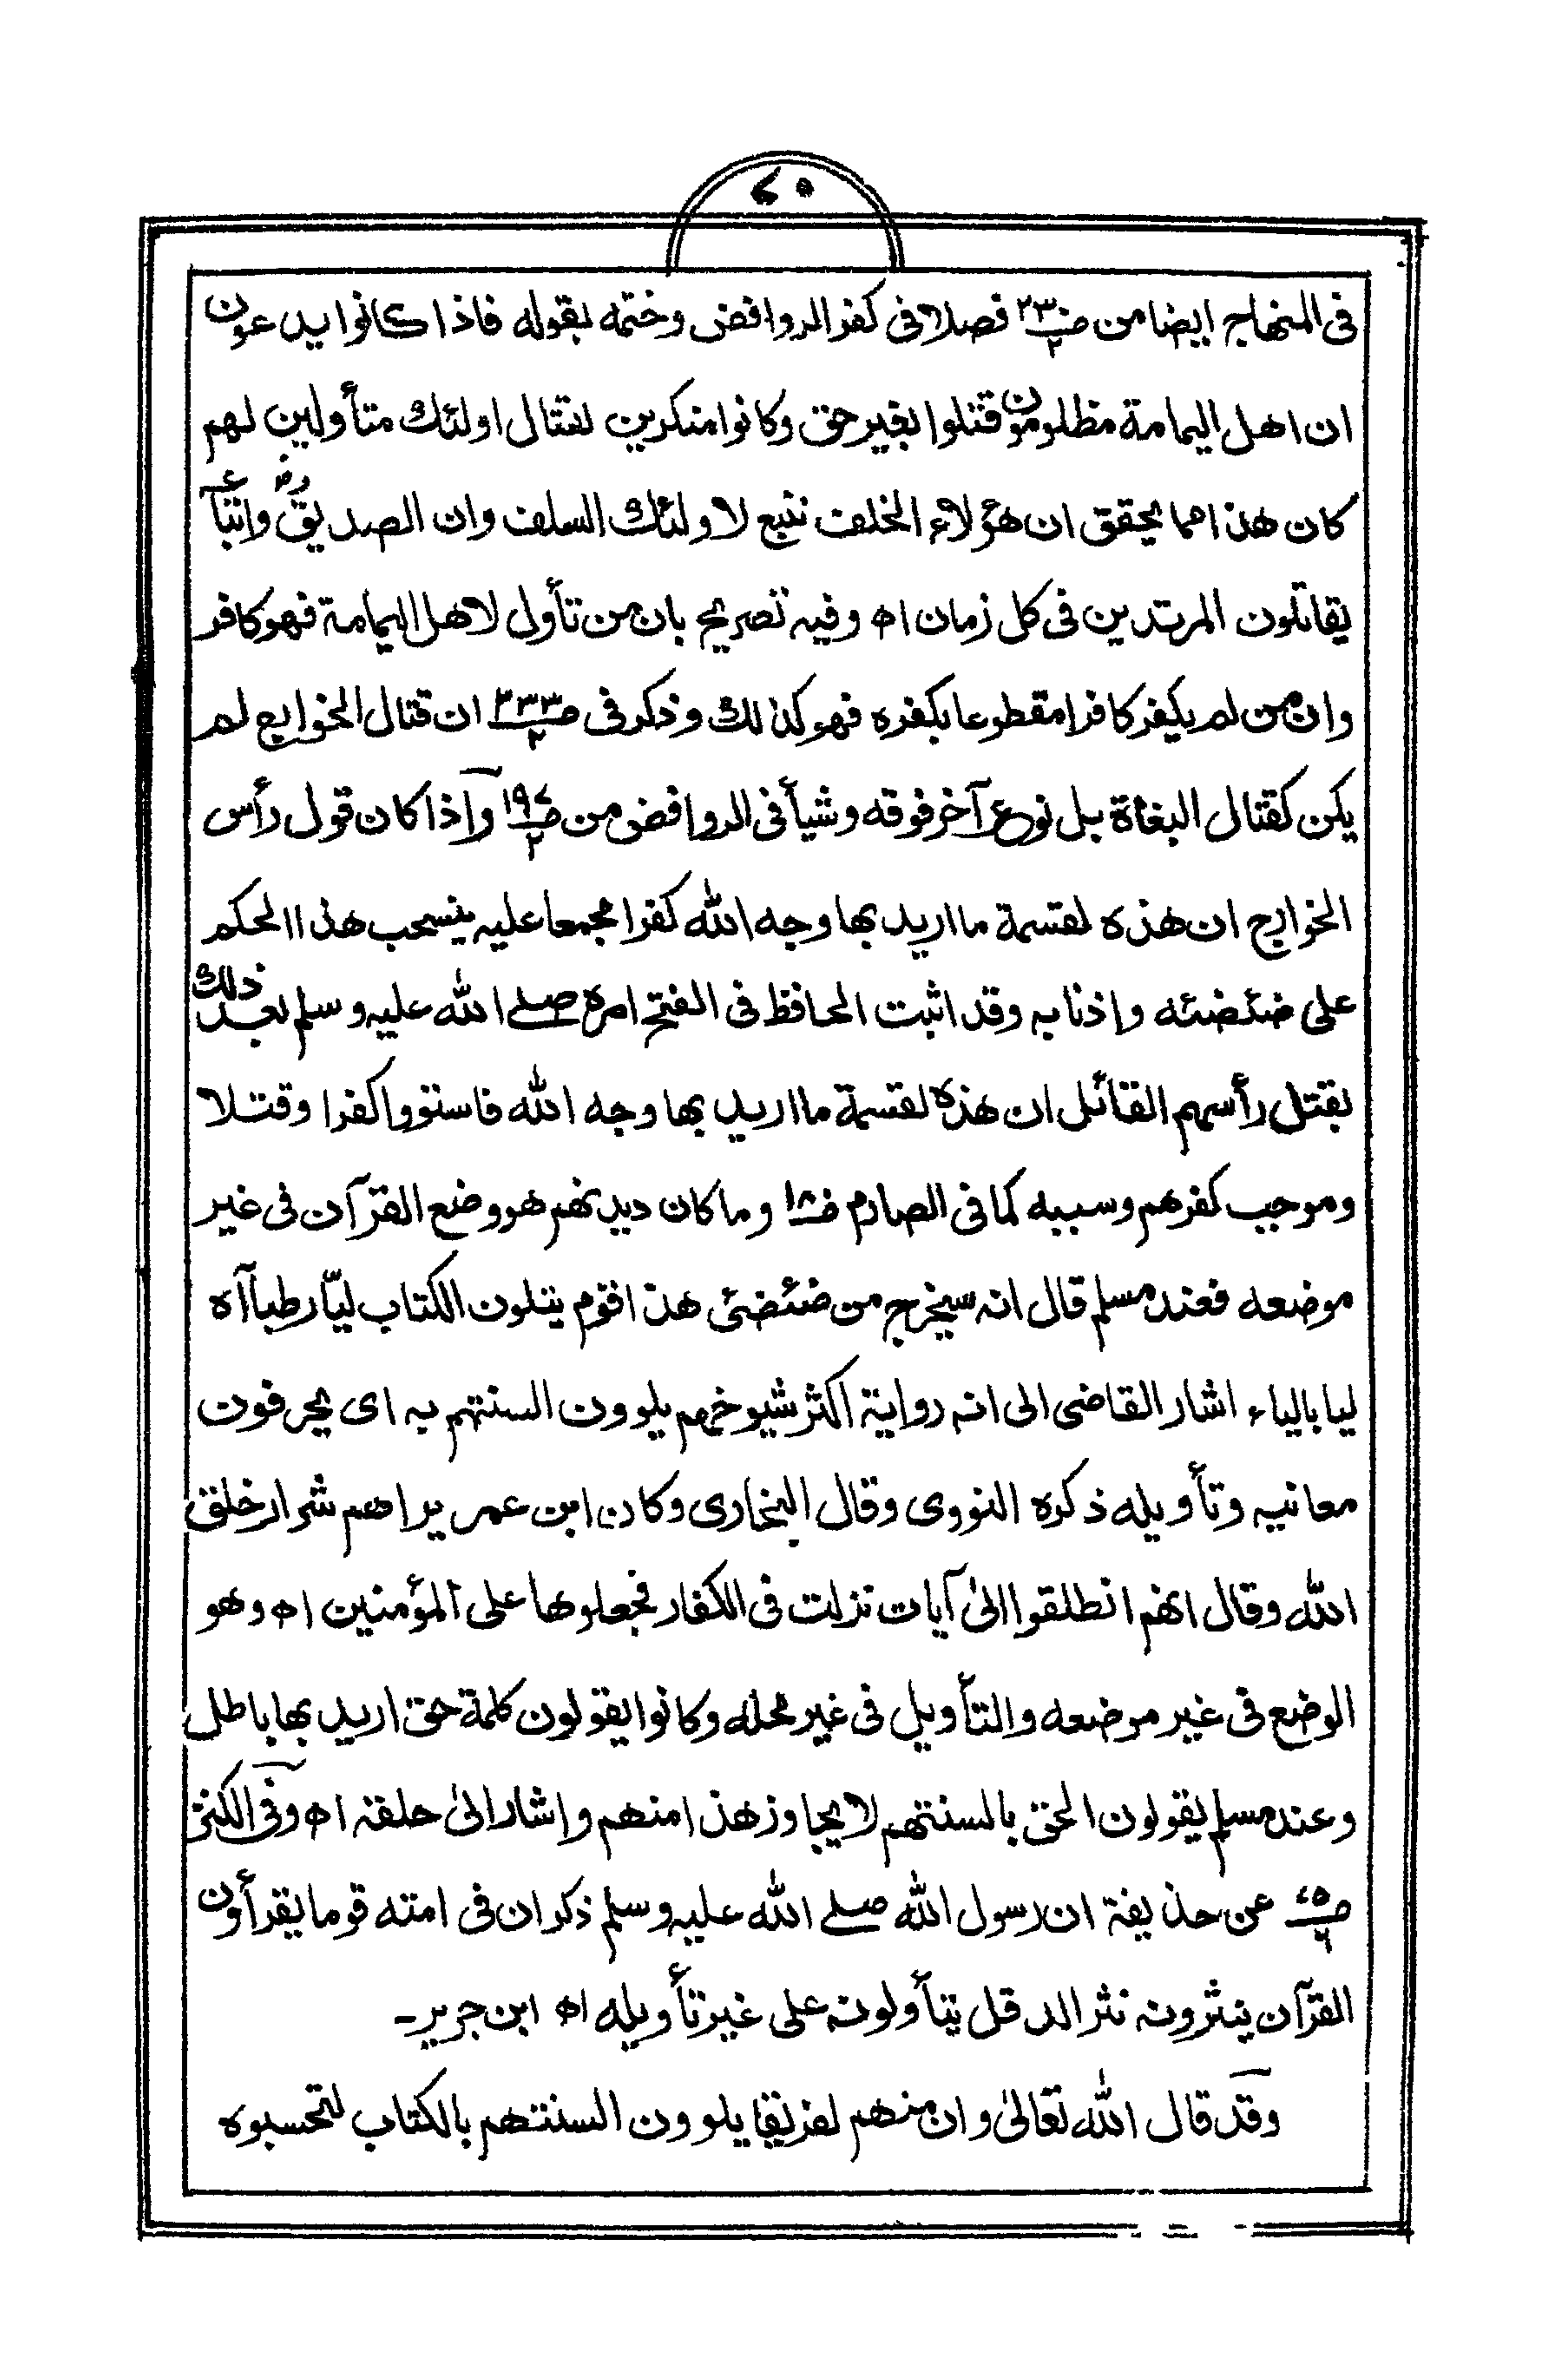 ٥٤
فى المنهاج ايضا من صـ٢٣٠ فصلا فى كفر الروافض وختمه بقوله فاذا كانوا يدعون
ان اهل اليمامة مظلومون قتلوا بغير حق وكانوا منكرين لقتال اولئك متأولين لهم
كان هذا مما يحقق ان هؤلاء الخلف تبع لاولئك السلف وان الصديقؓ واتباعه
يقاتلون المرتدين فى كل زمان اه وفيه تصريح بان من تأول لاهل اليمامة فهو كافر
وان من لم يكفر كافرا مقطوعا بكفره فهو كذلك وذكر فى صـ٢٣٣ ٢ ان قتال الخوارج لم
يكن كقتال البغاة بل نوع آخر فوقه وشيأ فى الروافض من صـ١٩٧ ٢ واذا كان قول رأس
الخوارج ان هذه لقسمة ما اريد بها وجه الله كفرا مجمعا عليه ينسحب هذا الحكم
على ضئضئه واذنابه وقد اثبت الحافظ فى الفتح امره صلے الله عليه وسلم بعد ذلك
بقتل رأسهم القائل ان هذه لقسمة ما اريد بها وجه الله فاستووا كفرا وقتلا
وموجب كفرهم وسببه كما فى الصارم وما كان ديدنهم هو وضع القرآن فى غير
موضعه فعند مسلم قال انه سيخرج من ضئضئى هذا قوم يتلون الكتاب ليّا رطبا آه
ليا بالياء اشار القاضى الى انه رواية اكثر شيوخهم يلوون السنتهم به اى يحرفون
معانيه وتأويله ذكره النووى وقال البخارى وكان ابن عمر يراهم شرار خلق
الله وقال انهم انطلقوا الىٰ آيات نزلت فى الكفار فجعلوها على المؤمنين اه وهو
الوضع فى غير موضعه والتأويل فى غير محله وكانوا يقولون كلمة حق اريد بها باطل
وعند مسلم يقولون الحق بالسنتهم لا يجاوز هذا منهم واشار الىٰ حلقه اه وفى الكنز
صـ عن حذيفة ان رسول الله صلے الله عليه وسلم ذكر ان فى امته قوما يقرأون
القرآن ينثرونه نثر الدقل يتأولونه على غير تأويله اه ابن جرير۔
وقد قال الله تعالىٰ وان منهم لفريقا يلوون السنتهم بالكتاب لتحسبوه